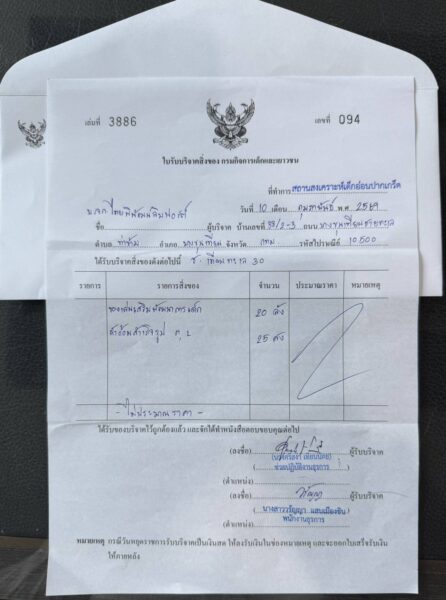 เล่มที่ 3886 เลขที่ 094
ใบรับบริจาคสิ่งของ กรมกิจการเด็กและเยาวชน
ที่ทำการ สถานสงเคราะห์เด็กอ่อนปากเกร็ด
วันที่ 10 เดือน กุมภาพันธ์ พ.ศ. 2569
ชื่อ ผู้บริจาค บ้านเลขที่ 33/2-3 ถนน บางขุนเทียนชายทะเล
ตำบล ท่าข้าม อำเภอ บางขุนเทียน จังหวัด กทม รหัสไปรษณีย์ 10,500
ได้รับบริจาคสิ่งของดังต่อไปนี้ ซ. เทียนทะเล 30
รายการ รายการสิ่งของ จำนวน ประมาณราคา หมายเหตุ
ของเล่นเสริมพัฒนาการเด็ก 20 ลัง
ผ้าอ้อมสำเร็จรูป 25 ลัง
- ไม่ประมาณราคา -
ได้รับของบริจาคไว้ถูกต้องแล้ว และจักได้ทำหนังสือตอบขอบคุณต่อไป
(ลงชื่อ) ผู้รับบริจาค
ช่วยปฏิบัติงานธุรการ
(ตำแหน่ง)
(ลงชื่อ) ผู้รับบริจาค
นางสาววรัญญา แสนเมืองชิน
(ตำแหน่ง) พนักงานธุรการ
หมายเหตุ กรณีวันหยุดราชการรับบริจาคเป็นเงินสด ให้ลงรับเงินในช่องหมายเหตุ และจะออกใบเสร็จรับเงิน
ให้ภายหลัง